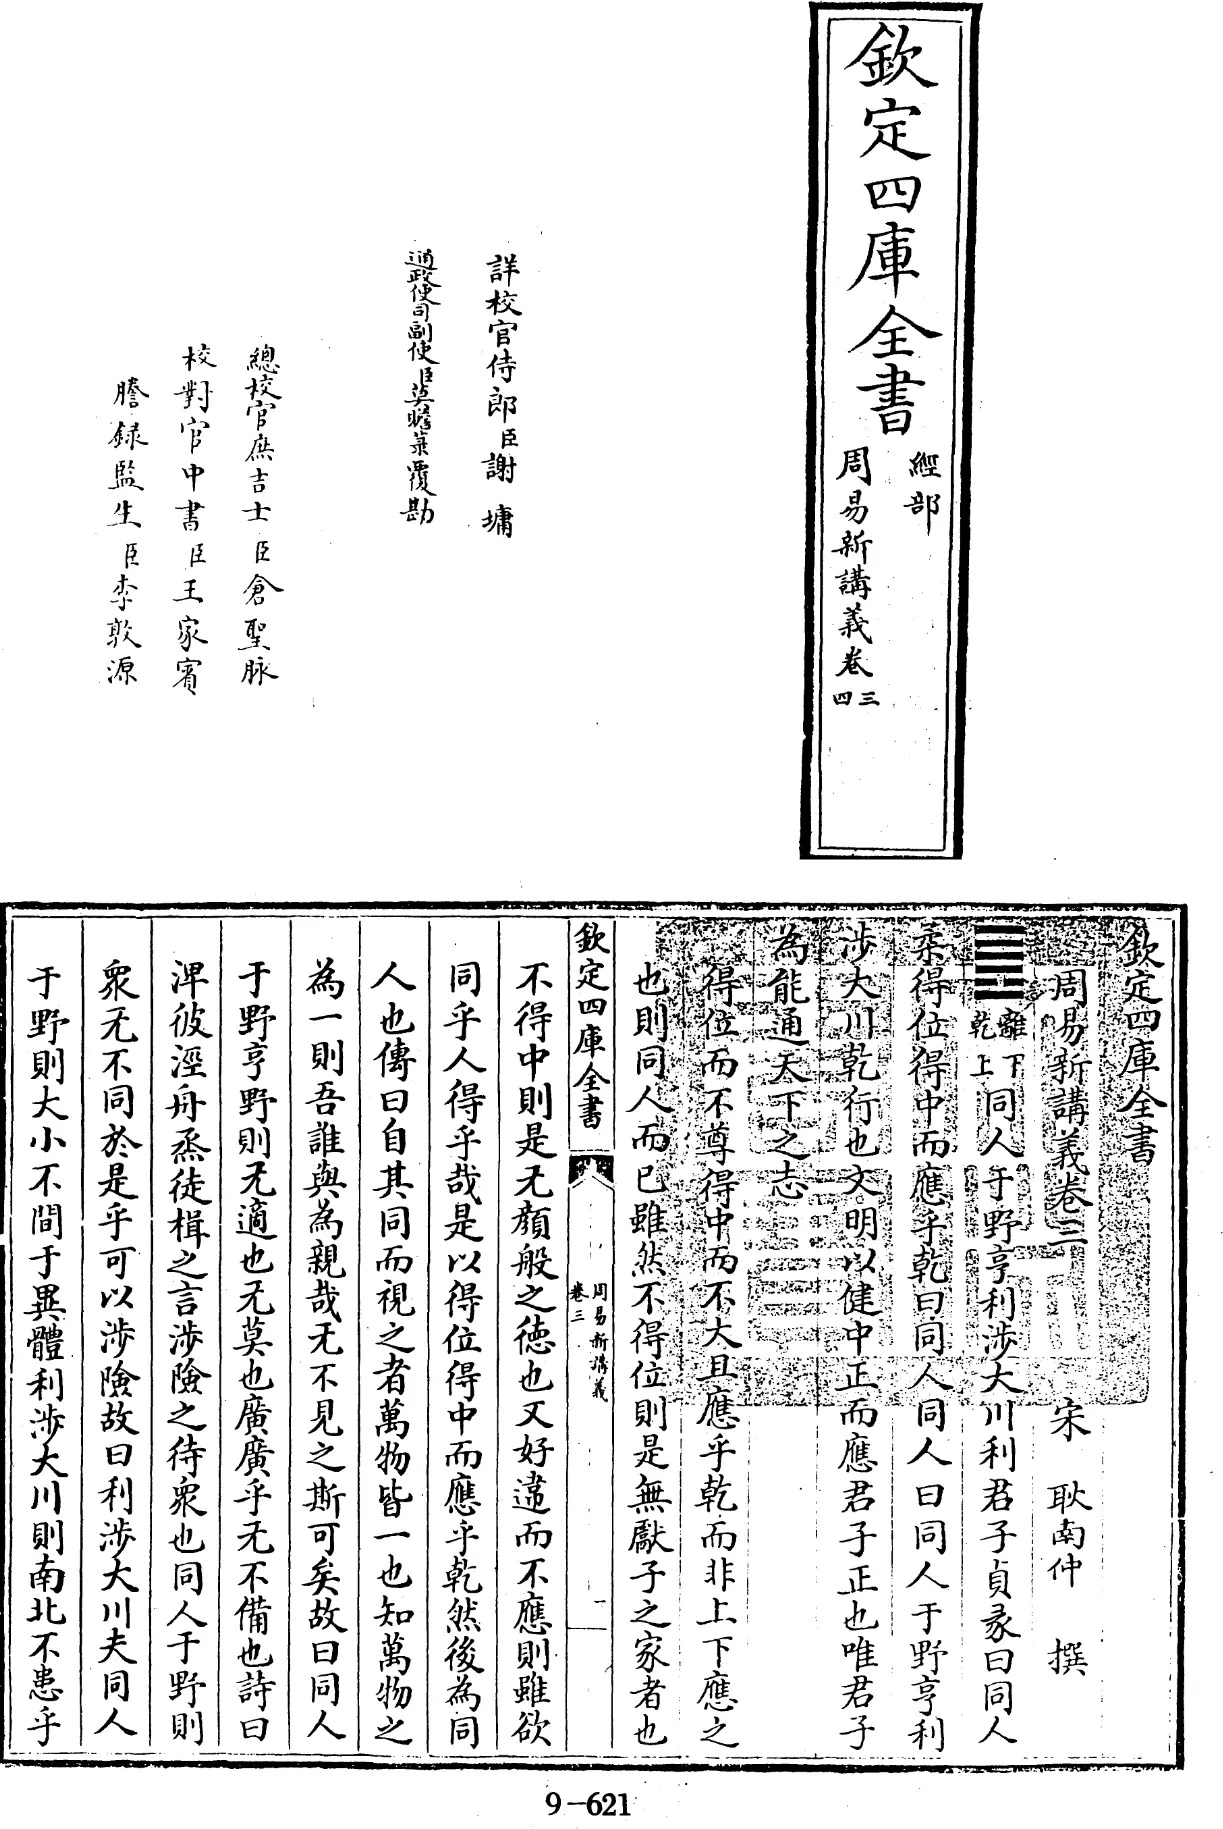 欽定四庫全書
經部
周易新講義卷三四
詳校官侍郎臣謝墉
通政使司副使臣莫瞻菉覆勘
總校官庶吉士臣倉聖脉
校對官中書臣王家賓
謄錄監生臣李敦源
欽定四庫全書
周易新講義卷三
宋 耿南仲 撰
離下乾上同人于野亨利涉大川利君子貞彖曰同人
柔得位得中而應乎乾曰同人同人曰同人于野亨利
涉大川乾行也文明以健中正而應君子正也唯君子
為能通天下之志
得位而不尊得中而不大且應乎乾而非上下應之
也則同人而已雖然不得位則是無獻子之家者也
欽定四庫全書
周易新講義
卷三
一
不得中則是无顔般之德也又好違而不應則雖欲
同乎人得乎哉是以得位得中而應乎乾然後為同
人也傳曰自其同而視之者萬物皆一也知萬物之
為一則吾誰與為親哉无不見之斯可矣故曰同人
于野亨野則无適也无莫也廣廣乎无不備也詩曰
淠彼涇舟烝徒楫之言涉險之待衆也同人于野則
衆无不同於是乎可以涉險故曰利涉大川夫同人
于野則大小不間于異體利涉大川則南北不患乎
9-621